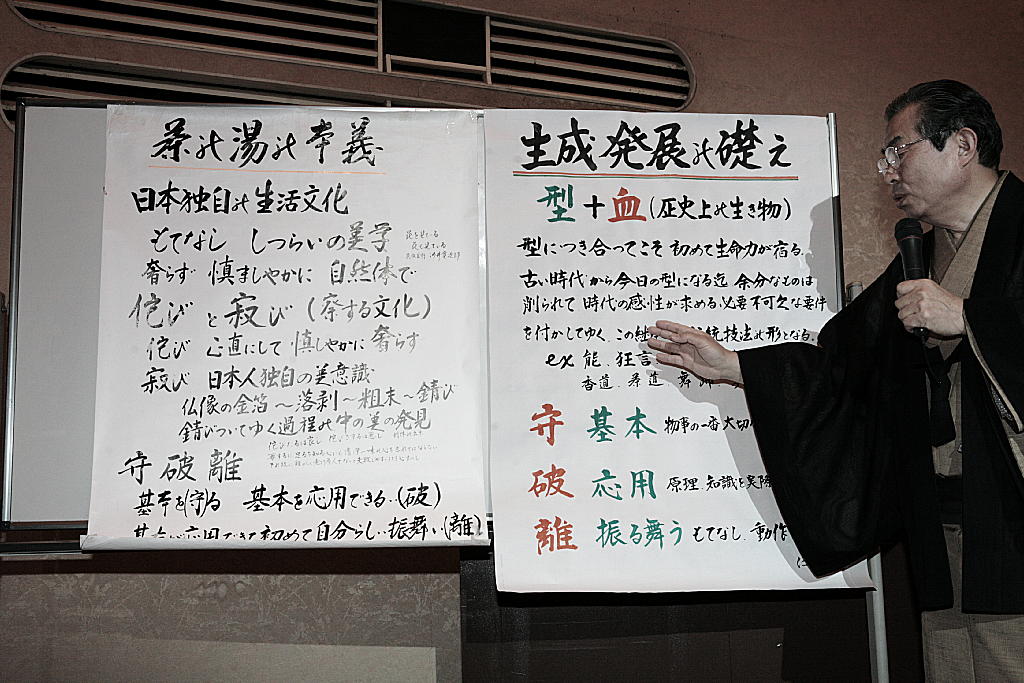 茶の湯の本義
日本独自の生活文化
もてなし しつらいの美学
奢らず 慎ましやかに 自然体で
侘び と 寂び (察する文化)
侘び 正直にして 慎しやかに 奢らず
寂び 日本人独自の美意識
仏像の金箔〜落剥〜粗末〜錆び
錆びついてゆく過程の中の美の発見
守 破 離
基本を守る 基本を応用できる‥(破)
応用できて初めて自分らしい振舞い(離)
生成発展の礎え
型+血(歴史上の生き物)
型につき合ってこそ 初めて生命力が宿る.
古い時代から今日の型になる迄 余分なものは
削られて 時代の感性が求める必要不可欠な要件
を付かしてゆく.この 統技法の形となる.
ex 能.狂言
香道.茶道
守 基本 物事の一番大切
破 応用 原理.知識を実際
離 振る舞う もてなし.動作